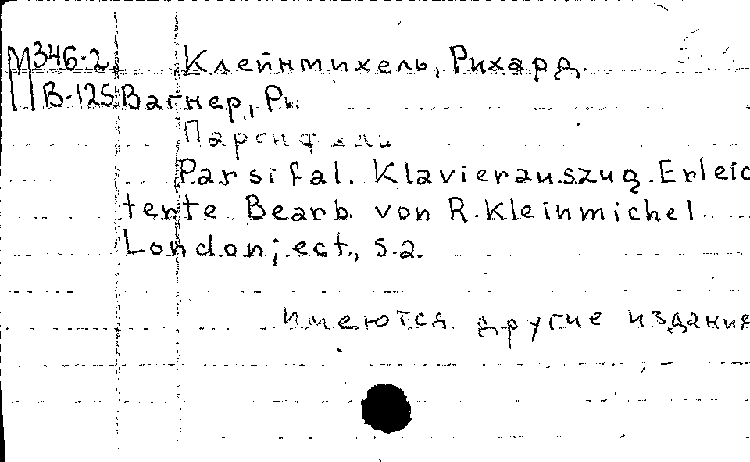 М346-2 Клейнмихель, Рихард.
В-125 Вагнер, Ри
Парсифаль
Parsifal. Klavierauszug. Erleic
terte Bearb. von R. Kleinmichel
London; ect., s.a.
имеются другие издания